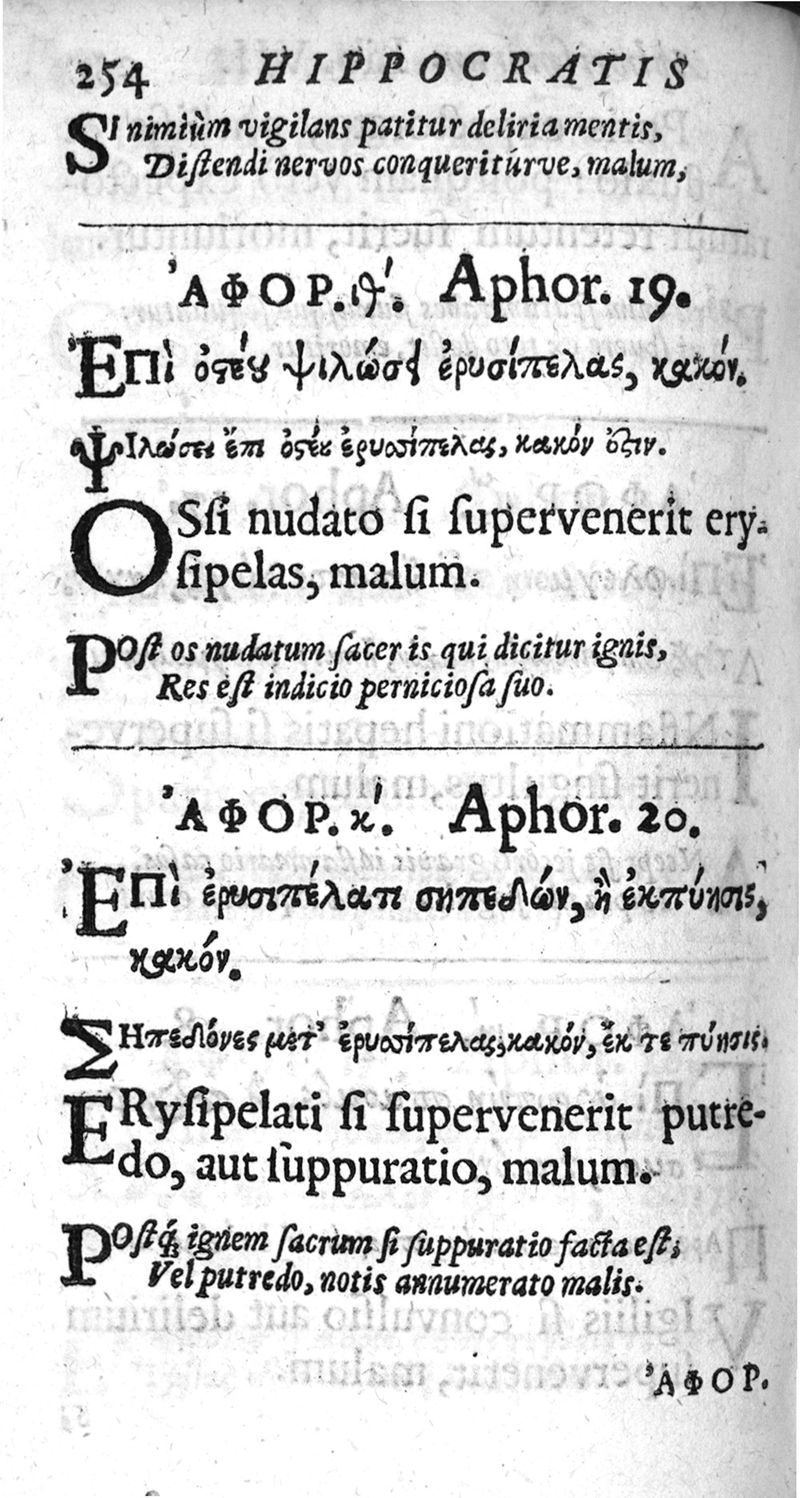 254 HIPPOCRATIS
SI nimiùm vigilans patitur deliria mentis,
Diſtendi nervos conqueritúrve, malum,
ἈΦΟΡ. ιθʹ. Aphor. 19.
ἘΠὶ ὀϛέȣ ψιλώσῃ ἐρυσίπελας, κακόν.
ΨΙλώσει ἔπι ὀϛέȣ ἐρυσίπελας, κακόν ὄζιν.
OSſi nudato ſi ſupervenerit ery-
ſipelas, malum.
POſt os nudatum ſacer is qui dicitur ignis,
Res eſt indicio pernicioſa ſuo.
ἈΦΟΡ. κʹ. Aphor. 20.
ἘΠὶ ἐρυσιπέλατι σηπεδών, ἢ ἐκπύησις,
κακόν.
ΣΗπεδόνες μετ᾽ ἐρυσίπελας, κακόν, ἔκ τε πύησις.
ERyſipelati ſi ſupervenerit putre-
do, aut ſuppuratio, malum.
POſtq́ꝫ ignem ſacrum ſi ſuppuratio facta eſt,
Vel putredo, notis annumerato malis.
ἈΦΟΡ.